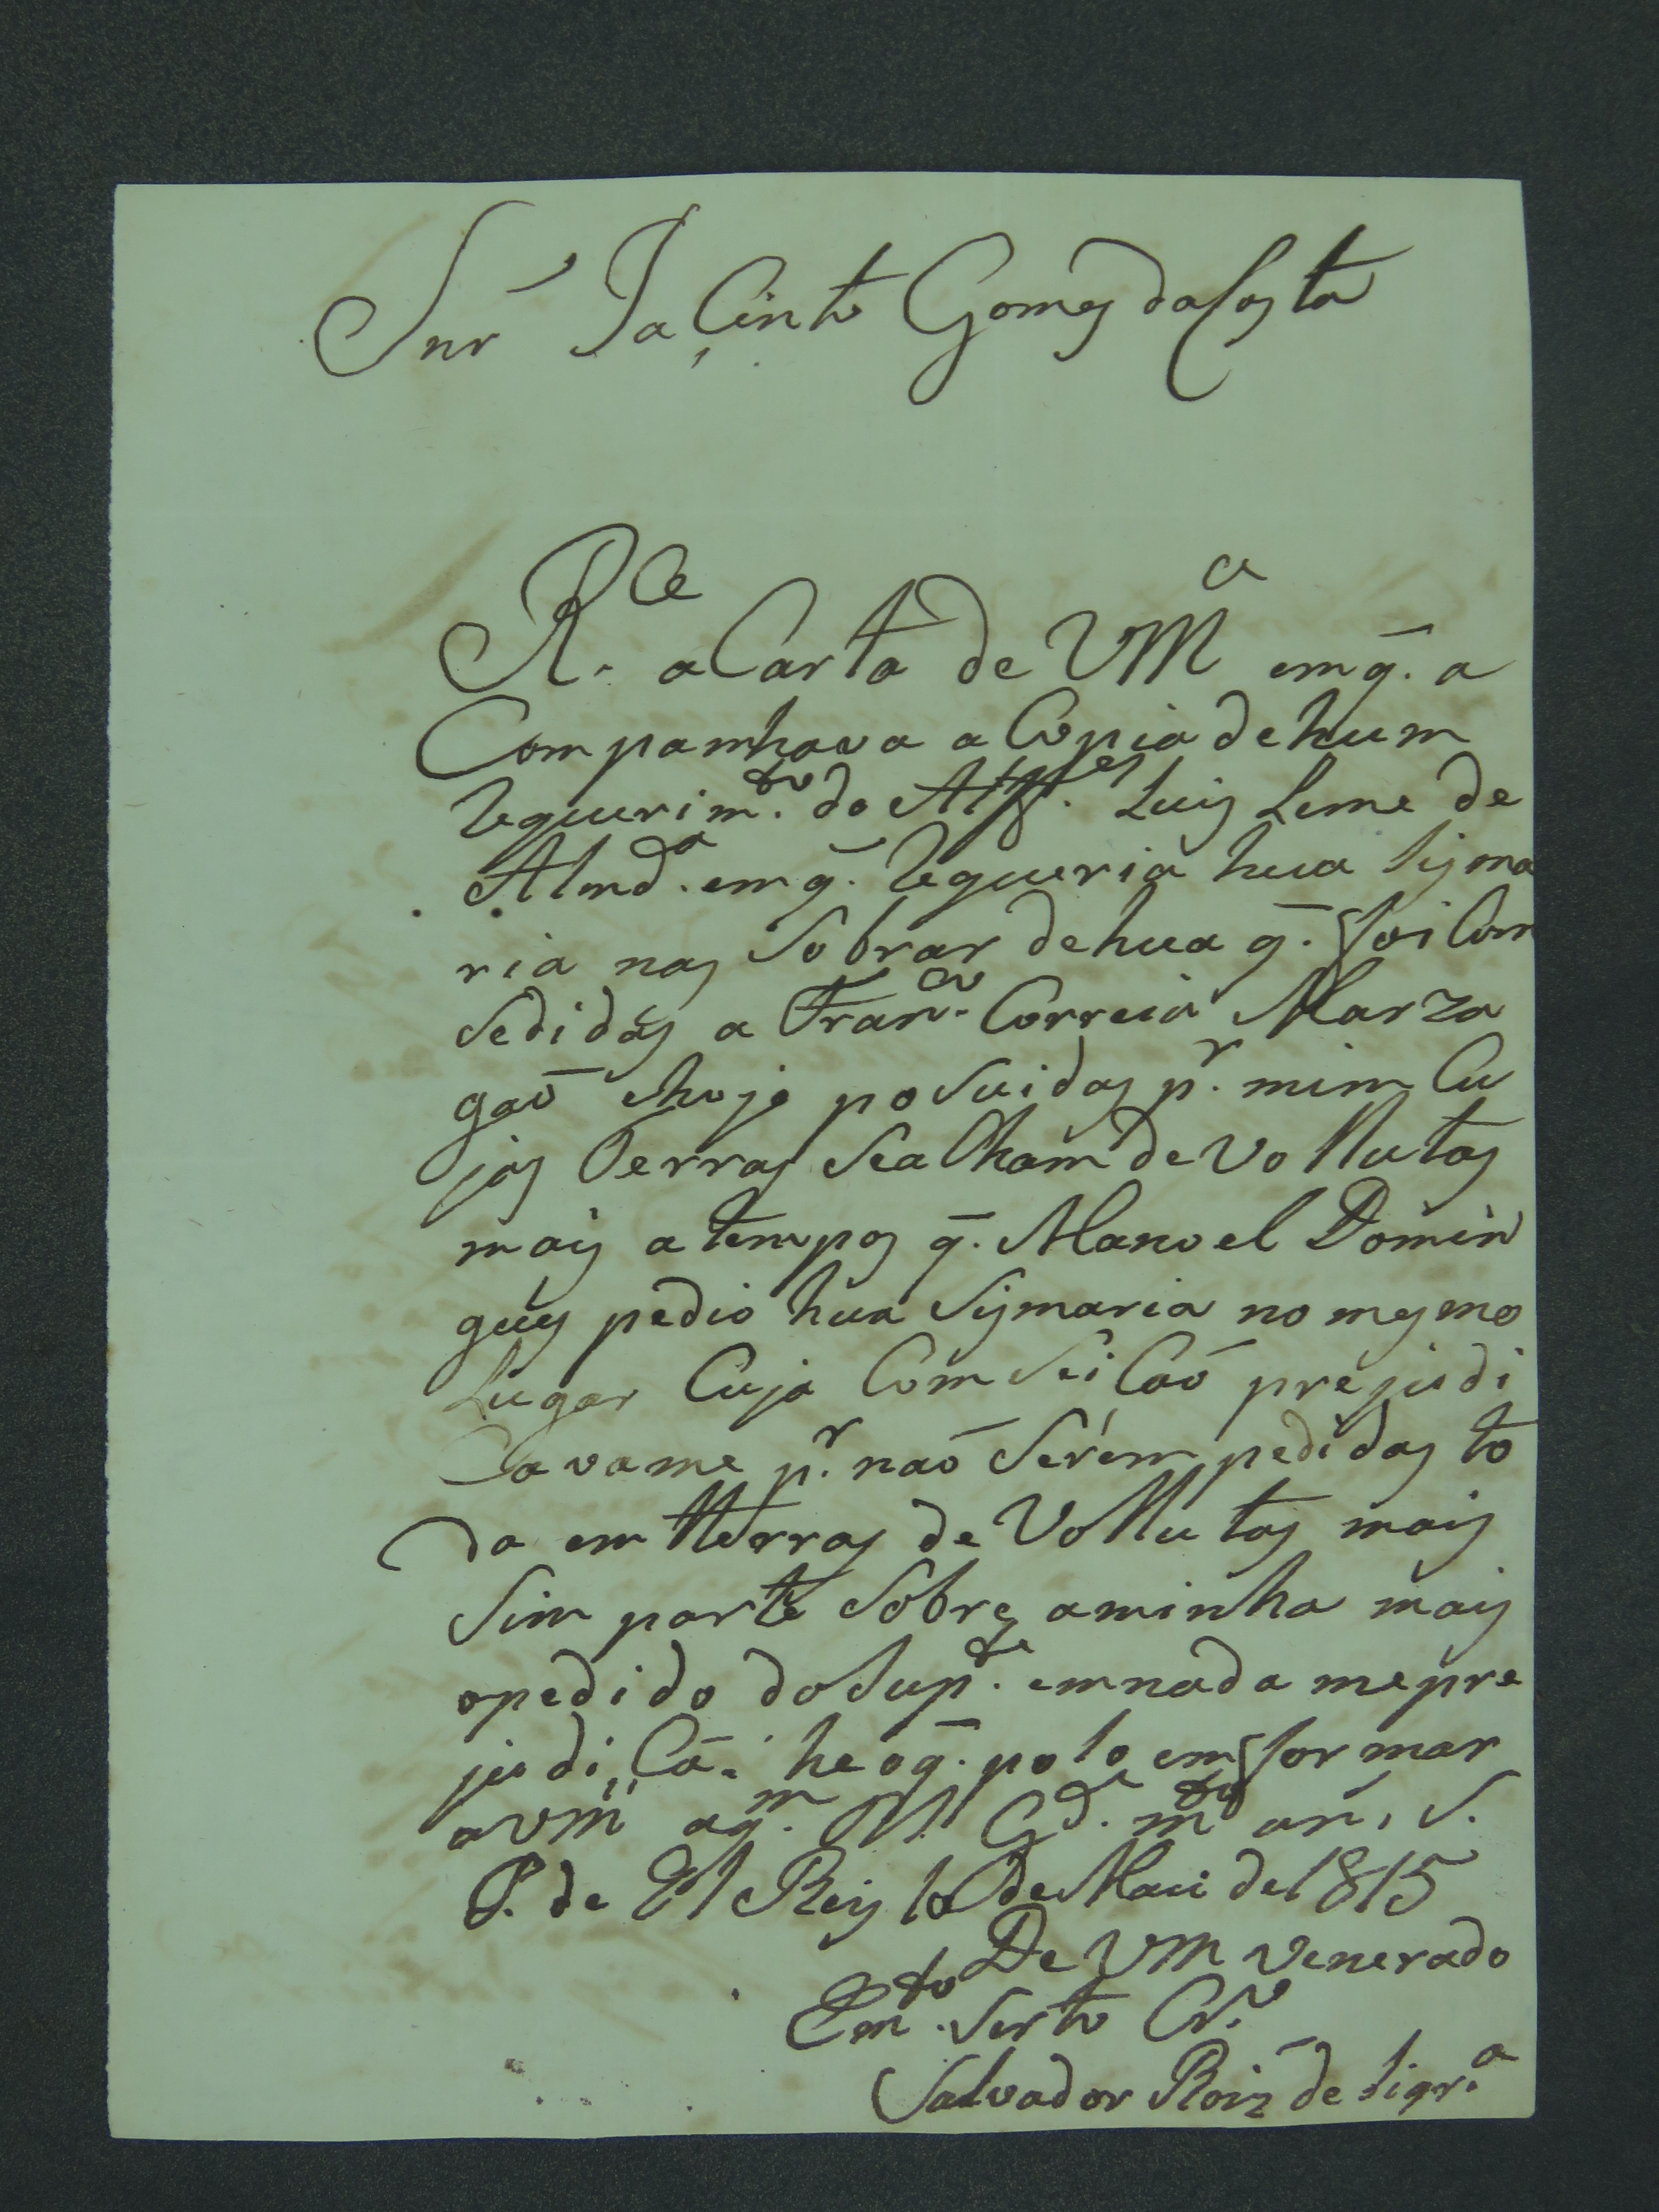 Snr̃ Jaçinto Gomes da Costa
Rce. a Carta de VMce em q̃. a
Companhava a Copia de hum
Requerimto. do Alfes. Luis Leme de
Almda. em q̃. Requeria hua sisma
ria nas sobrar de hua q̃. foi Com
sedidas a Franco. Correia Marza
gaõ ehoje posuidas pr. mim Cu
jas Terras seacham devollutas
mais a tempos q̃. Manoel Domin
gues pedio hua sismaria no mesmo
Lugar Cuja ComseiCaõ prejudi
Cavame pr. naõ serem pedidas to
da em tterras devollutas mais
sim parte sobre aminha mais
opedido do supte. emnada mepre
judiCa. he oq̃. poso emformar
avm aqm. Gde. mtos an. s.
P. de El Rey de Maii de 1815
De VM venerado
Emto. serto Cro.
Salvador Roiz de siqra.